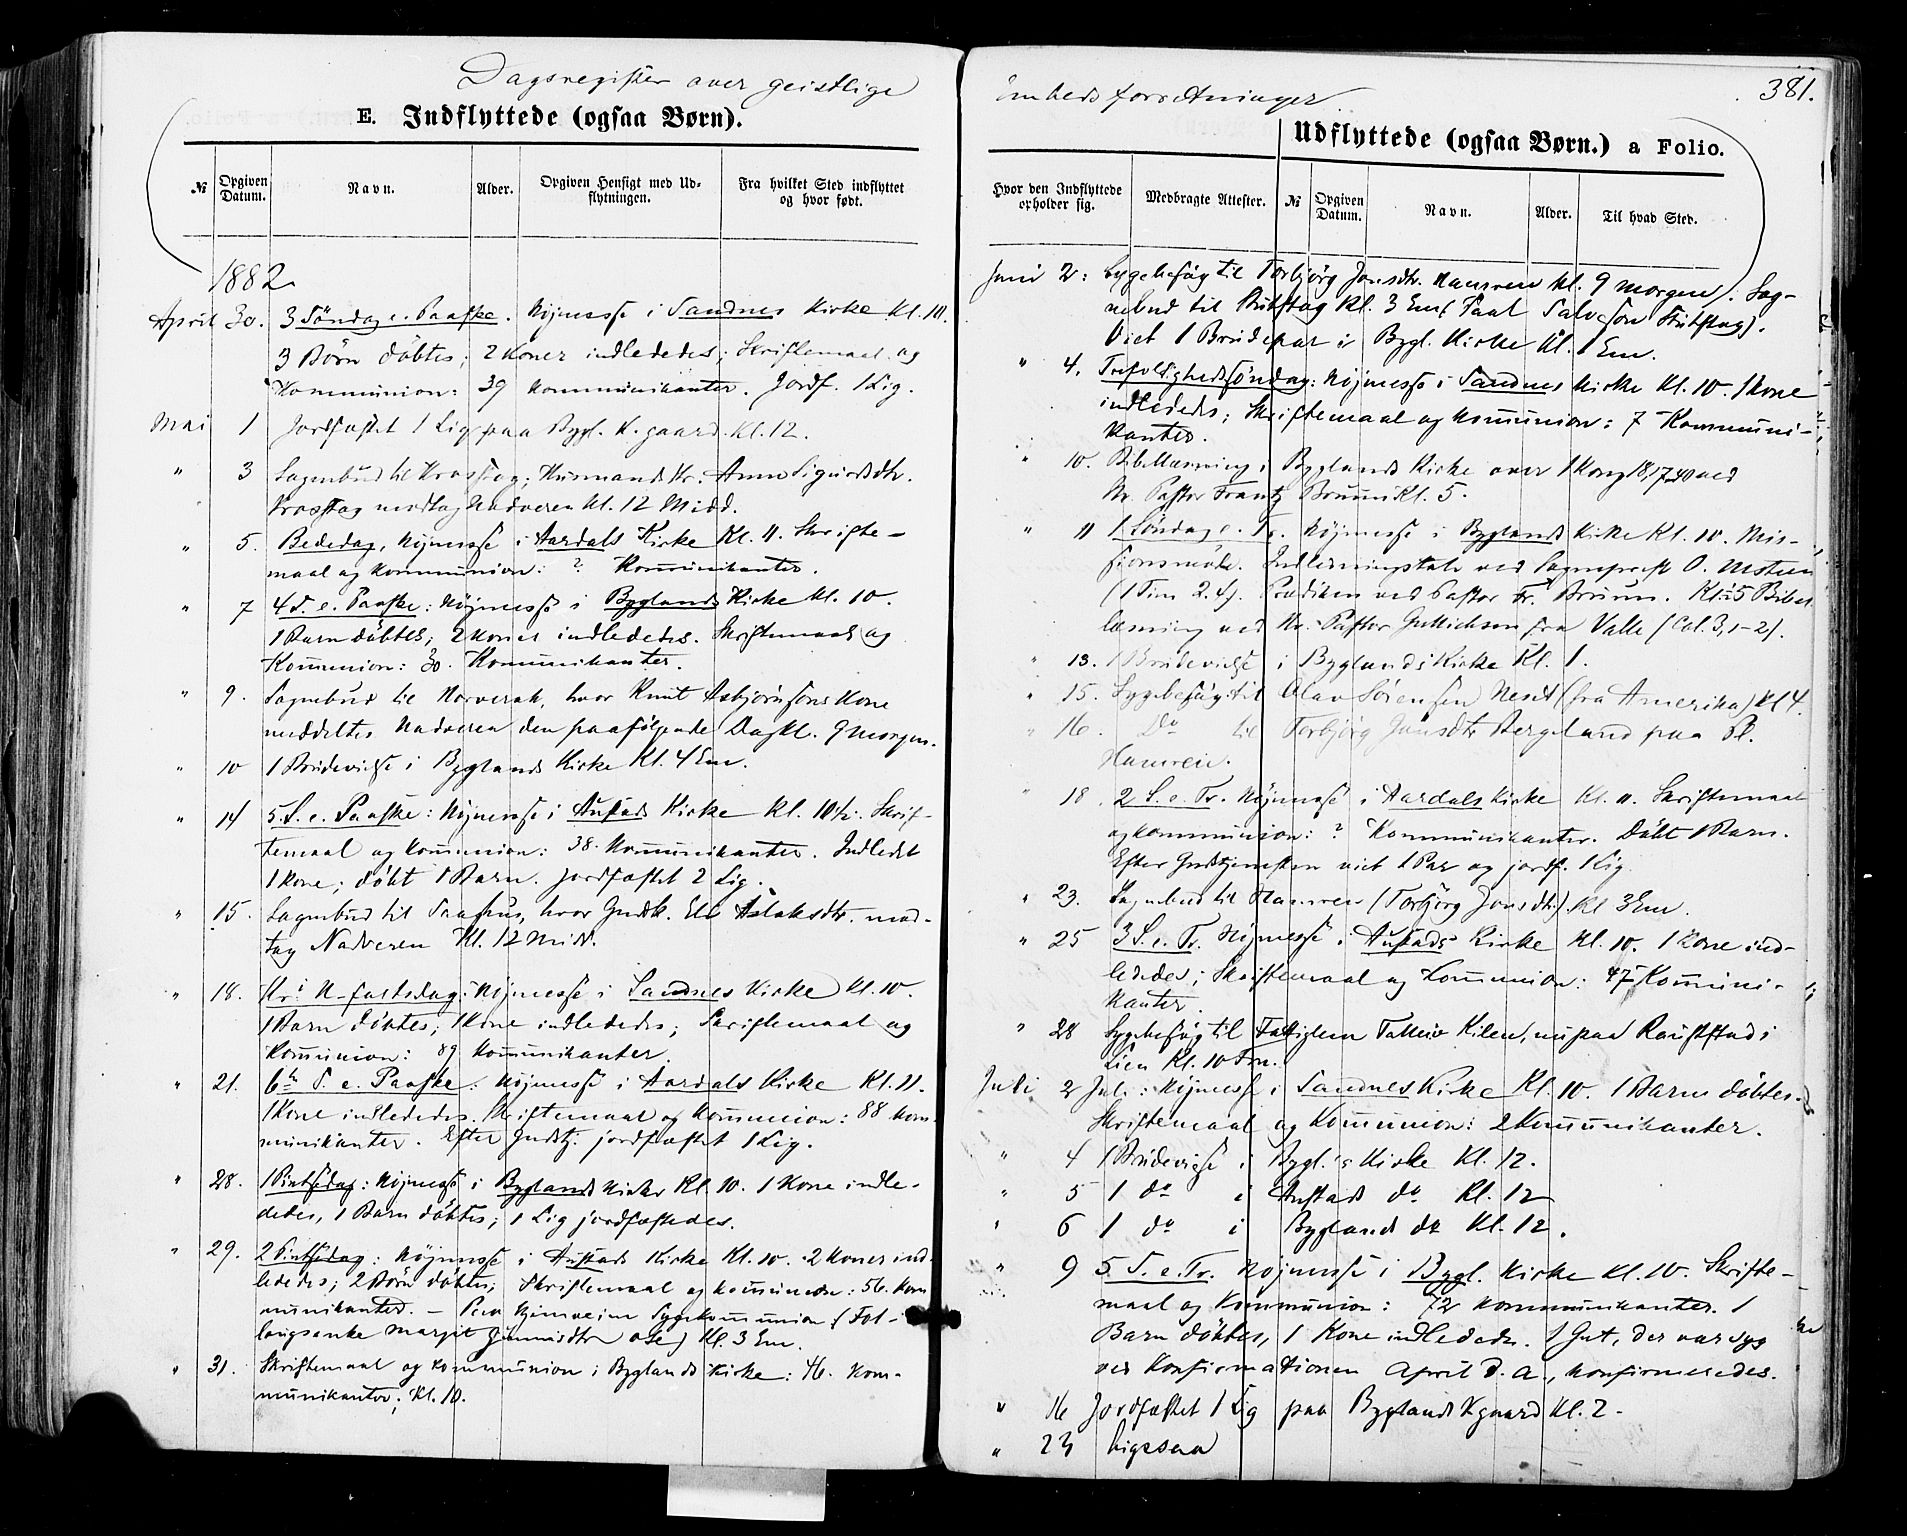 Dagsregister over geistlige
E. Indflyttede (ogsaa Børn).
№ Opgiven Datum. Navn. Alder. Opgiven Hensigt med Udflytningen. Fra hvilket Sted indflyttet og hvor født.
1882
April 30. 3 Söndag e. Paaske. Höjmesse i Sandnes Kirke Kl. 10.
3 Börn döbtes; 2 Koner indlededes; Skriftemaal og
Kommunion: 39 Kommunikanter. Jordf. 1 Lig.
Mai 1 Jordfæstet 1 Lig paa Bygl. K.gaard. Kl. 12.
" 3 Sognebud til Frøstøg; Husmands K. Anne Sigurdsdtr.
modtog Nadveren Kl. 12 Midd.
" 5. Bededag, Höjmesse i Aardals Kirke Kl. 11. Skrifte-
maal og Kommunion: ? Kommunikanter.
" 7 4 S. e. Paaske: Höjmesse i Byglands Kirke Kl. 10.
1 Barn döbtes; 2 Koner indlededes. Skriftemaal og
Kommunion: 30. Kommunikanter.
" 9. Sognebud til Horverak, hvor Knut Asbjörnsons Kone
meddeltes Nadveren den paafölgende Dag Kl. 9 Morgen.
" 10 1 Brudevielse i Byglands Kirke Kl. 4 Em.
" 14 5. S. e. Paaske: Höjmesse i Austads Kirke Kl. 10½. Skrif-
temaal og Kommunion: 38. Kommunikanter. Indledet
1 Kone; döbt 1 Barn. Jordfæstet 2 Lig.
" 15. Sognebud til hvor Gudsk. Els Aslaksdtr. mod-
tog Nadveren Kl. 12 Mid.
" 18. Kri H-fartsdag: Höjmesse i Sandnes Kirke Kl. 10.
1 Barn döbtes; 1 Kone indlededes; Skriftemaal og
Kommunion: 89 Kommunikanter.
" 21. 6te S. e. Paaske: Höjmesse i Aardals Kirke Kl. 11.
1 Kone indlededes. Skriftemaal og Kommunion: 88 Kom-
munikanter. Efter Gudstj. jordfæstet 1 Lig.
" 28. 1 Pintsedag: Höjmesse i Byglands Kirke Kl. 10. 1 Kone indle-
dedes, 1 Barn döbtes; 1 Lig jordfæstedes.
" 29. 2 Pintsedag: Höjmesse i Austads Kirke Kl. 10. 2 Koner ind-
lededes; 2 Börn döbtes; Skriftemaal og Kommunion: 56. Kom
munikanter. – Paa Hjemveien Sygekommunion (Fol-
laugsenke Margit Gunnisdtr Ose) Kl. 3 Em.
" 31. Skriftemaal og Kommunion i Byglands Kirke: 46. Kom-
munikanter; Kl. 10.
381.
Embedsforretninger
Udflyttede (ogsaa Børn.) a Folio.
Hvor den Indflyttede opholder sig. Medbragte Attester. № Opgiven Datum. Navn. Alder. Til hvad Sted.
Juni 2: Sygebesög til Torbjörg Jonsdtr. Hamren Kl. 9 Morgen). Sog-
nebud til Kl. 3 Em (Paal Salveson
Viet 1 Brudepar i Bygl. Kirke Kl. 1 Em.
" 4. Trefoldighedssöndag: Höjmesse i Sandnes Kirke Kl. 10. 1 Kone
indlededes; Skriftemaal og Kommunion: 7 Kommuni-
kanter.
" 10. Bibellæsning i Byglands Kirke over 1 Kong 18,17-40 ved
Hr. Pastor Frantz Bruun Kl. 5.
" 11 1 Söndag e. Tr. Höjmesse i Byglands Kirke Kl. 10. Mis-
sionsmöde. Indledningstale ved Sogneprest O.
(1 Tim 2.4). Prædiken ved Pastor Fr. Bruun. Kl. 5 Bibel
læsning ved Hr. Pastor Gullichsen fra Valle (Col. 3, 1-2).
" 13. 1 Brudevielse i Byglands Kirke Kl. 1.
" 15. Sygebesög til Olav Sörensen Neset (fra Amerika) Kl 4.
" 16. Do til Torbjörg Jonsdtr Bergeland paa Pl.
Hamren.
" 18. 2 S. e. Tr. Höjmesse i Aardals Kirke Kl. 11. Skriftemaal
og Kommunion: ? Kommunikanter. Döbt 1 Barn.
Efter Gudstjenesten viet 1 Par og jordf. 1 Lig.
" 23. Sognebud til Hamren (Torbjörg Jonsdtr.) Kl 3 Em.
" 25 3 S. e. Tr. Höjmesse i Austads Kirke Kl. 10. 1 Kone ind-
lededes; Skriftemaal og Kommunion: 47 Kommuni-
kanter.
" 28 Sygebesög til Fattiglem Tallev Kilen, nu paa i
Lien Kl. 10 Fm.
Juli 2 Juli: Höjmesse i Sandnes Kirke Kl. 10. 1 Barn döbtes.
Skriftemaal og Kommunion: 2 Kommunikanter.
" 4 1 Brudevielse i Bygl.'s Kirke Kl. 12.
" 5 1 do i Austads do Kl. 12
" 6 1 do i Byglands do Kl. 12.
" 9 5. S. e. Tr. Höjmesse i Bygl. Kirke Kl. 10. Skrifte-
maal og Kommunion: 72 Kommunikanter. 1
Barn döbtes, 1 Kone indlededes. 1 Gut, der var syg
ved Konfirmationen April d. A., konfirmeredes.
" 16 Jordfæstet 1 Lig paa Byglands Kgaard Kl. 2.
" 23 Ligesaa